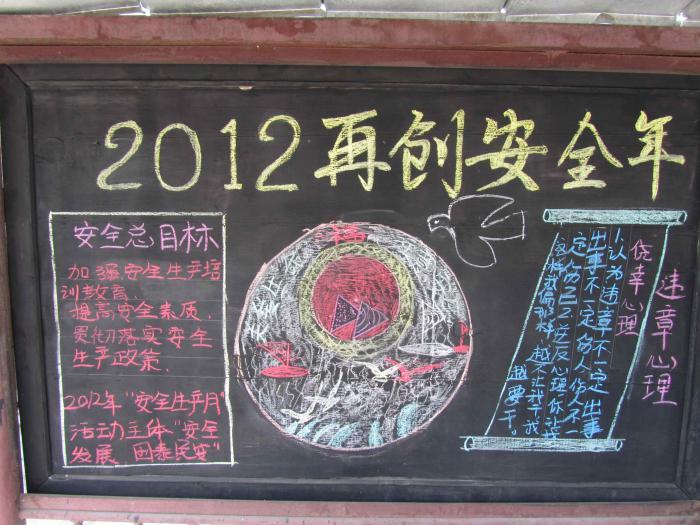 2012再创安全年
安全总目标
加强安全生产培
训教育.
提高安全素质.
贯彻落实安全
生产政策.
2012年“安全生产月”
活动主体“安全
发展、国泰民安”
福
违章心理
侥幸心理
1认为违章不一定出事
出事不一定伤人伤人不一
定伤己2逆反心理:你
越不让我干我
越要干。